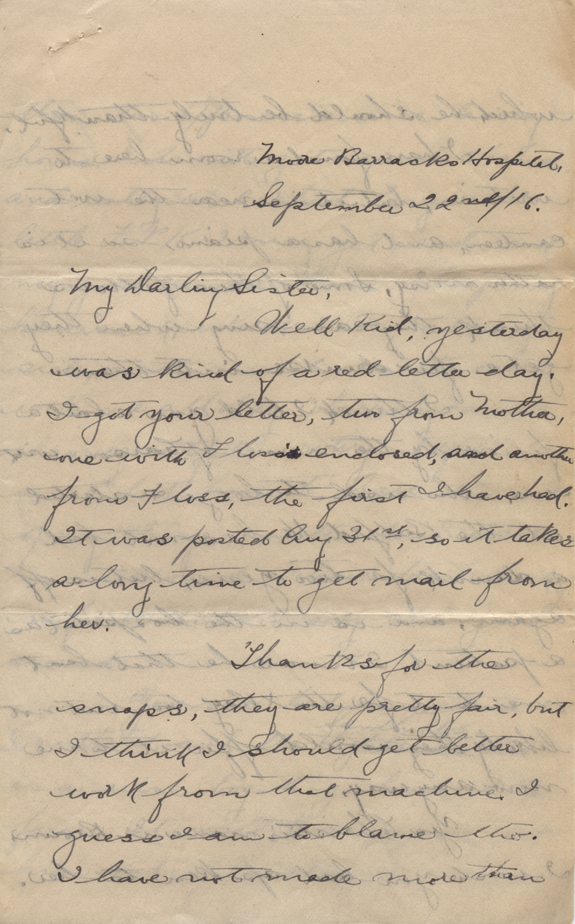 Moore Barracks Hospital,
September 22nd/16.
My Darling Sister,
Well Kid, yesterday
was kind of a red letter day.
I got your letter, two from Mother,
one with Floss's enclosed, and another
from Floss, the first I have had.
It was posted Aug 31st, so it takes
a long time to get mail from
her.
Thanks for the
snaps, they are pretty fair, but
I think I should get better
work from that machine. I
guess I am to blame tho.
I have not made more than